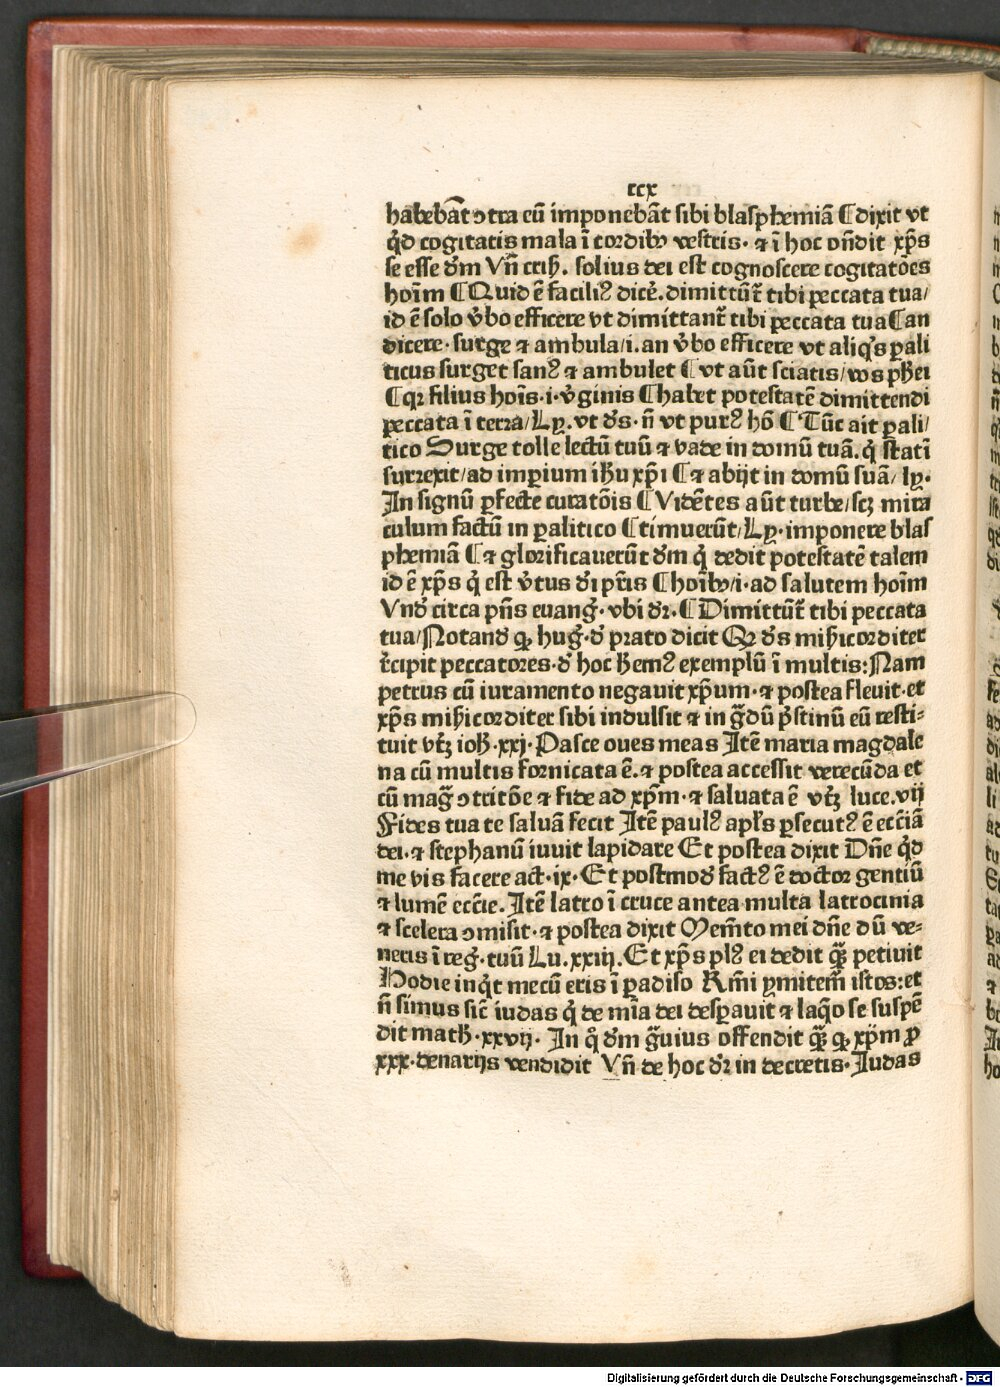 ccx
habebāt ꝯtra eū imponebāt sibi blasphemiā ⸿ dixit vt
qͥd cogitatis mala ī cordibꝰ vestris. ⁊ ī hoc oñdit xp̄s
se esse dm̄ Vñ criẖ. solius dei est cognoscere cogitatōes
hoīm ⸿ Quid ē faciliꝰ dicẻ. dimittūt̉ tibi peccata tua/
id ē solo v̉bo efficere vt dimittant̉ tibi peccata tua ⸿ an
dicere. surge ⁊ ambula/i. an v̉bo efficere vt aliqͥs ꝑali
ticus surget sanꝰ ⁊ ambulet ⸿ vt aūt sciatis/vos pẖei
⸿ qꝛ filius hoīs. i. v̉ginis ⸿ habet potestatē dimittendi
peccata ī terra/Ly. vt ds̄. ñ vt purꝰ hō ⸿ Tūc ait ꝑali/
tico Surge tolle lectū tuū ⁊ vade in domū tuā. qͥ statī
surrexit/ad imꝑium iẖu xp̄i ⸿ ⁊ abijt in domū suā/ ly.
In signū ꝑfecte curatōis ⸿ Vidētes aūt turbe/scꝫ mira
culum factū in ꝑalitico ⸿ timuerūt/Ly. imponere blas
phemiā ⸿ ⁊ glorificauerūt dm̄ qͥ dedit potestatē talem
id ē xp̄s qͥ est v̉tus di̅ pr̄is ⸿ hoībꝰ/i. ad salutem hoīm
Vnd̉ circa pñs euang̉. vbi dr̄. ⸿ Dimittūt̉ tibi peccata
tua/Notand̉ ꝙ hug̉. d̉ prato dicit Qꝛ ds̄ miẖicorditer
r̉cipit peccatores. d̉ hoc ẖemꝰ exemplū ī multis: Nam
petrus cū iuramento negauit xp̄um. ⁊ postea fleuit. et
xp̄s miẖicorditer sibi indulsit ⁊ in gͣdū pͥstinū eū resti⸗
tuit vtꝫ ioẖ. xxj. Pasce oues meas Itē maria magdale
na cū multis fornicata ē. ⁊ postea accessit verecūda et
cū magͣ ꝯtritōe ⁊ fide ad xp̄m. ⁊ saluata ē vtꝫ luce. vij
Fides tua te saluā fecit Itē paulꝰ apl̄s ꝑsecutꝰ ē ecc̄iā
dei. ⁊ stephanū iuuit lapidare Et postea dixit Dñe qͥd
me vis facere act. ix. Et postmod̉ factꝰ ē doctor gentiū
⁊ lumē ecc̄ie. Itē latro ī cruce antea multa latrocinia
⁊ scelera ꝯmisit. ⁊ postea dixit Mem̄to mei dñe dū ve⸗
neris ī reg̉. tuū Lu. xxiij. Et xp̄s plꝰ ei dedit qͣꝫ petiuit
Hodie inqͥt mecū eris ī ꝑadiso Km̄i ymitem̄ istos: et
ñ simus sic̄ iudas qͥ de mīa dei desꝑauit ⁊ laqͦo se suspē
dit matẖ. xxvij. In qͦ dm̄ gͣuius offendit qͣꝫ ꝙ xp̄m ꝓ
xxx. denarijs vendidit Vñ de hoc dr̄ in decretis. Iudas
Digitalisierung gefördert durch die Deutsche Forschungsgemeinschaft - DFG